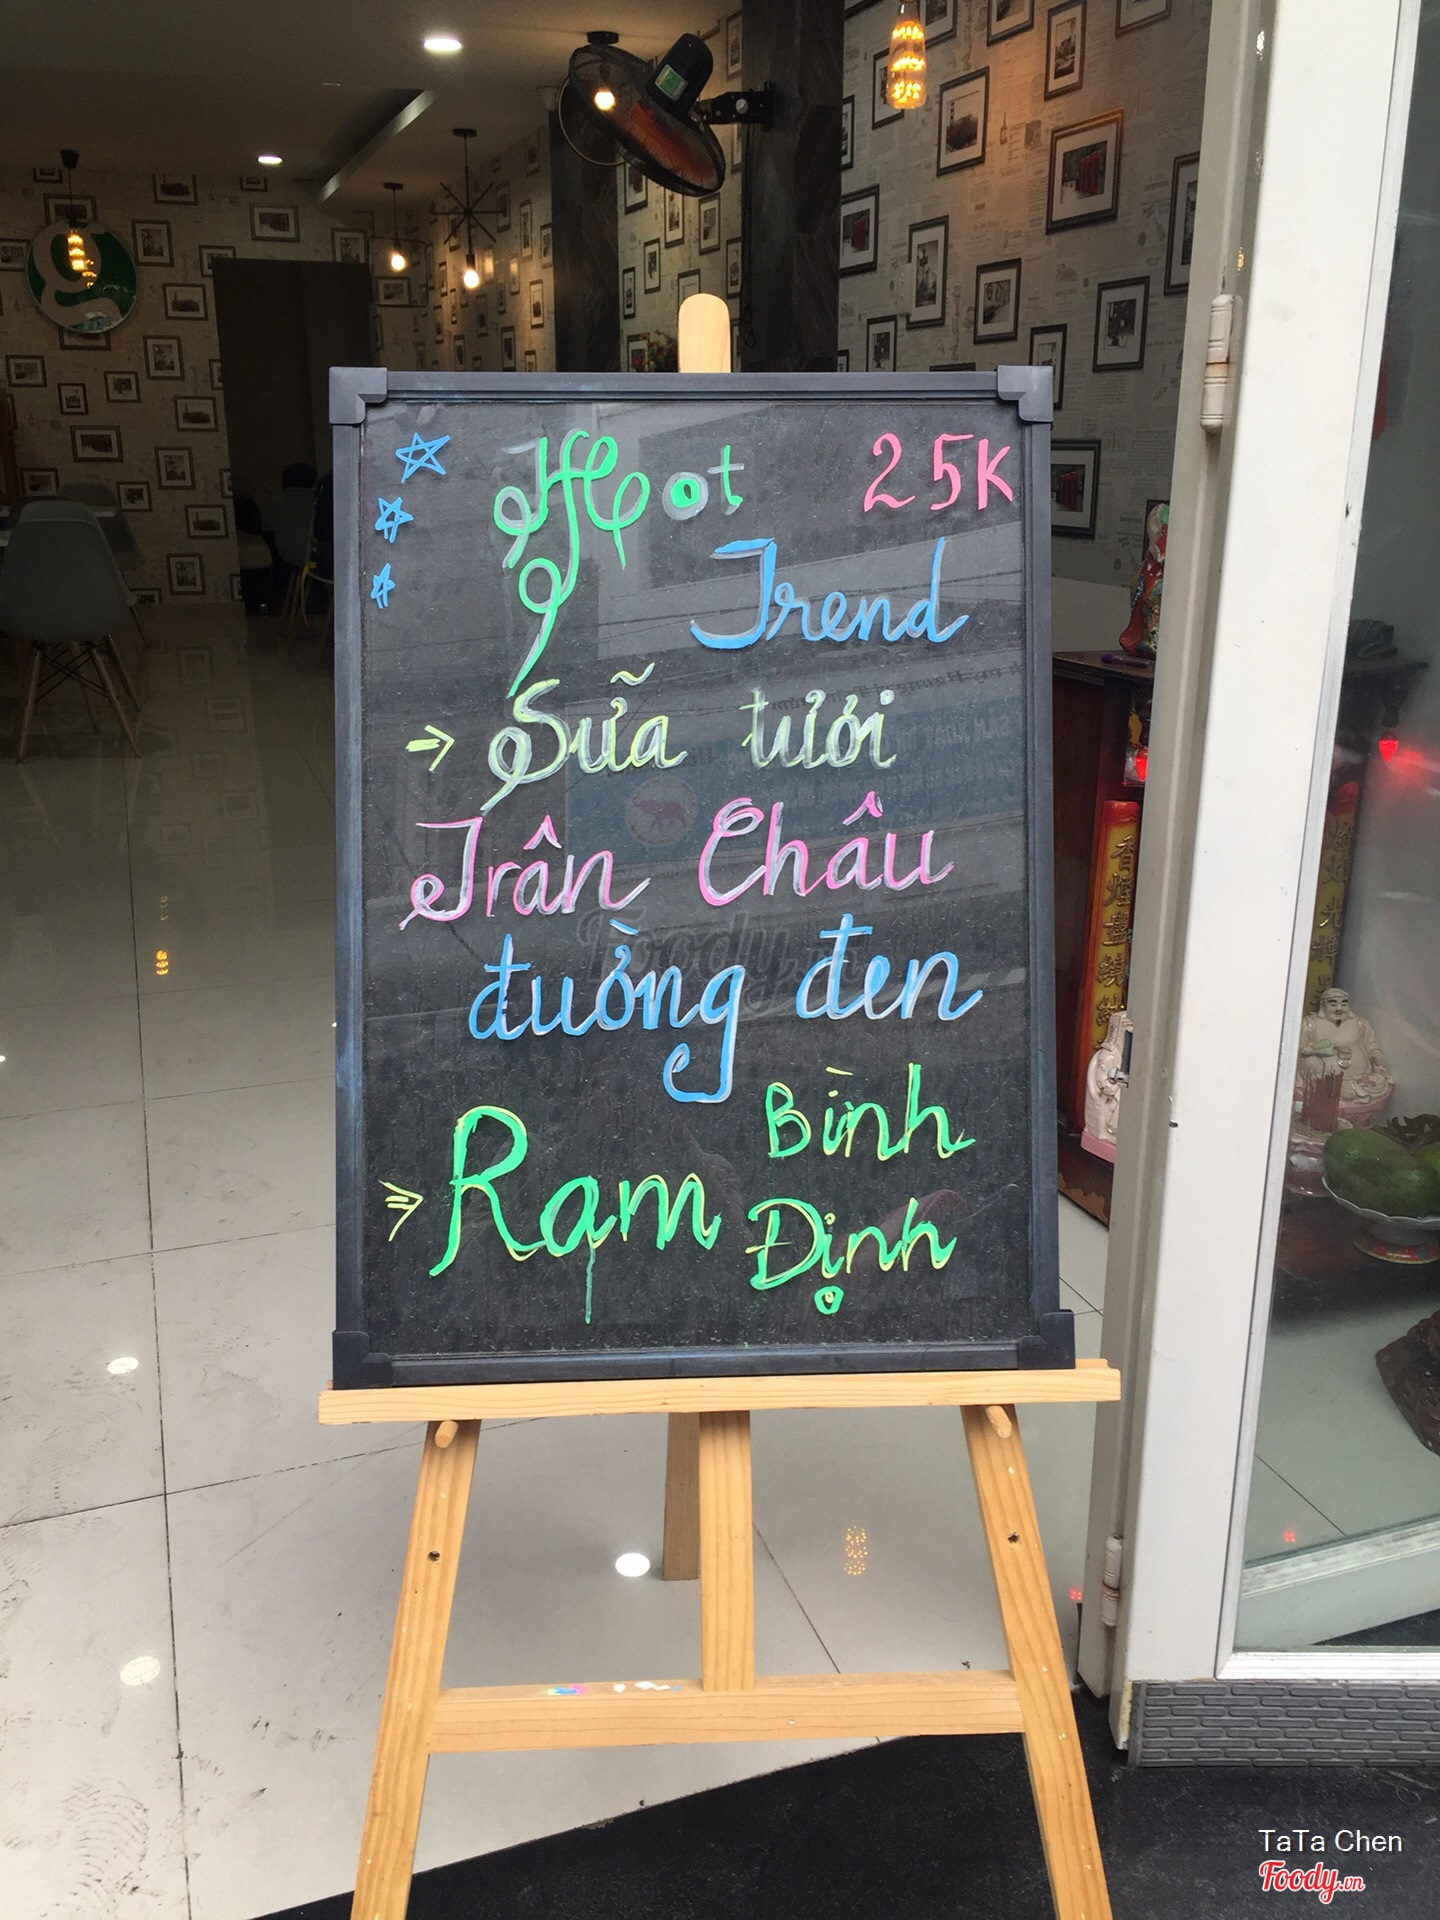 Hot 25K
Trend
Sữa tươi
Trân Châu
đường đen
Rạm Bình
Định
Foody.vn
TaTa Chen
Foody.vn